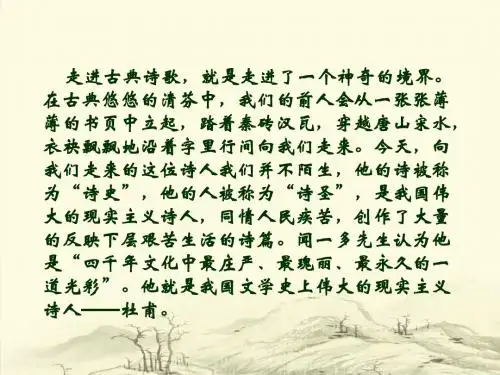 走进古典诗歌，就是走进了一个神奇的境界。
在古典悠悠的清芬中，我们的前人会从一张张薄
薄的书页中立起，踏着秦砖汉瓦，穿越唐山宋水，
衣袂飘飘地沿着字里行间向我们走来。今天，向
我们走来的这位诗人我们并不陌生，他的诗被称
为“诗史”，他的人被称为“诗圣”，是我国伟
大的现实主义诗人，同情人民疾苦，创作了大量
的反映下层艰苦生活的诗篇。闻一多先生认为他
是“四千年文化中最庄严、最瑰丽、最永久的一
道光彩”。他就是我国文学史上伟大的现实主义
诗人——杜甫。